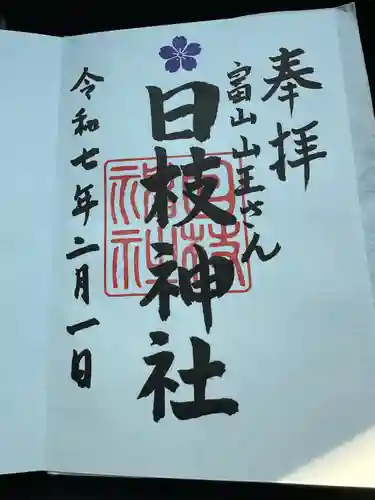 奉拝
富山山王さん
日枝神社
令和七年二月一日
日枝神社